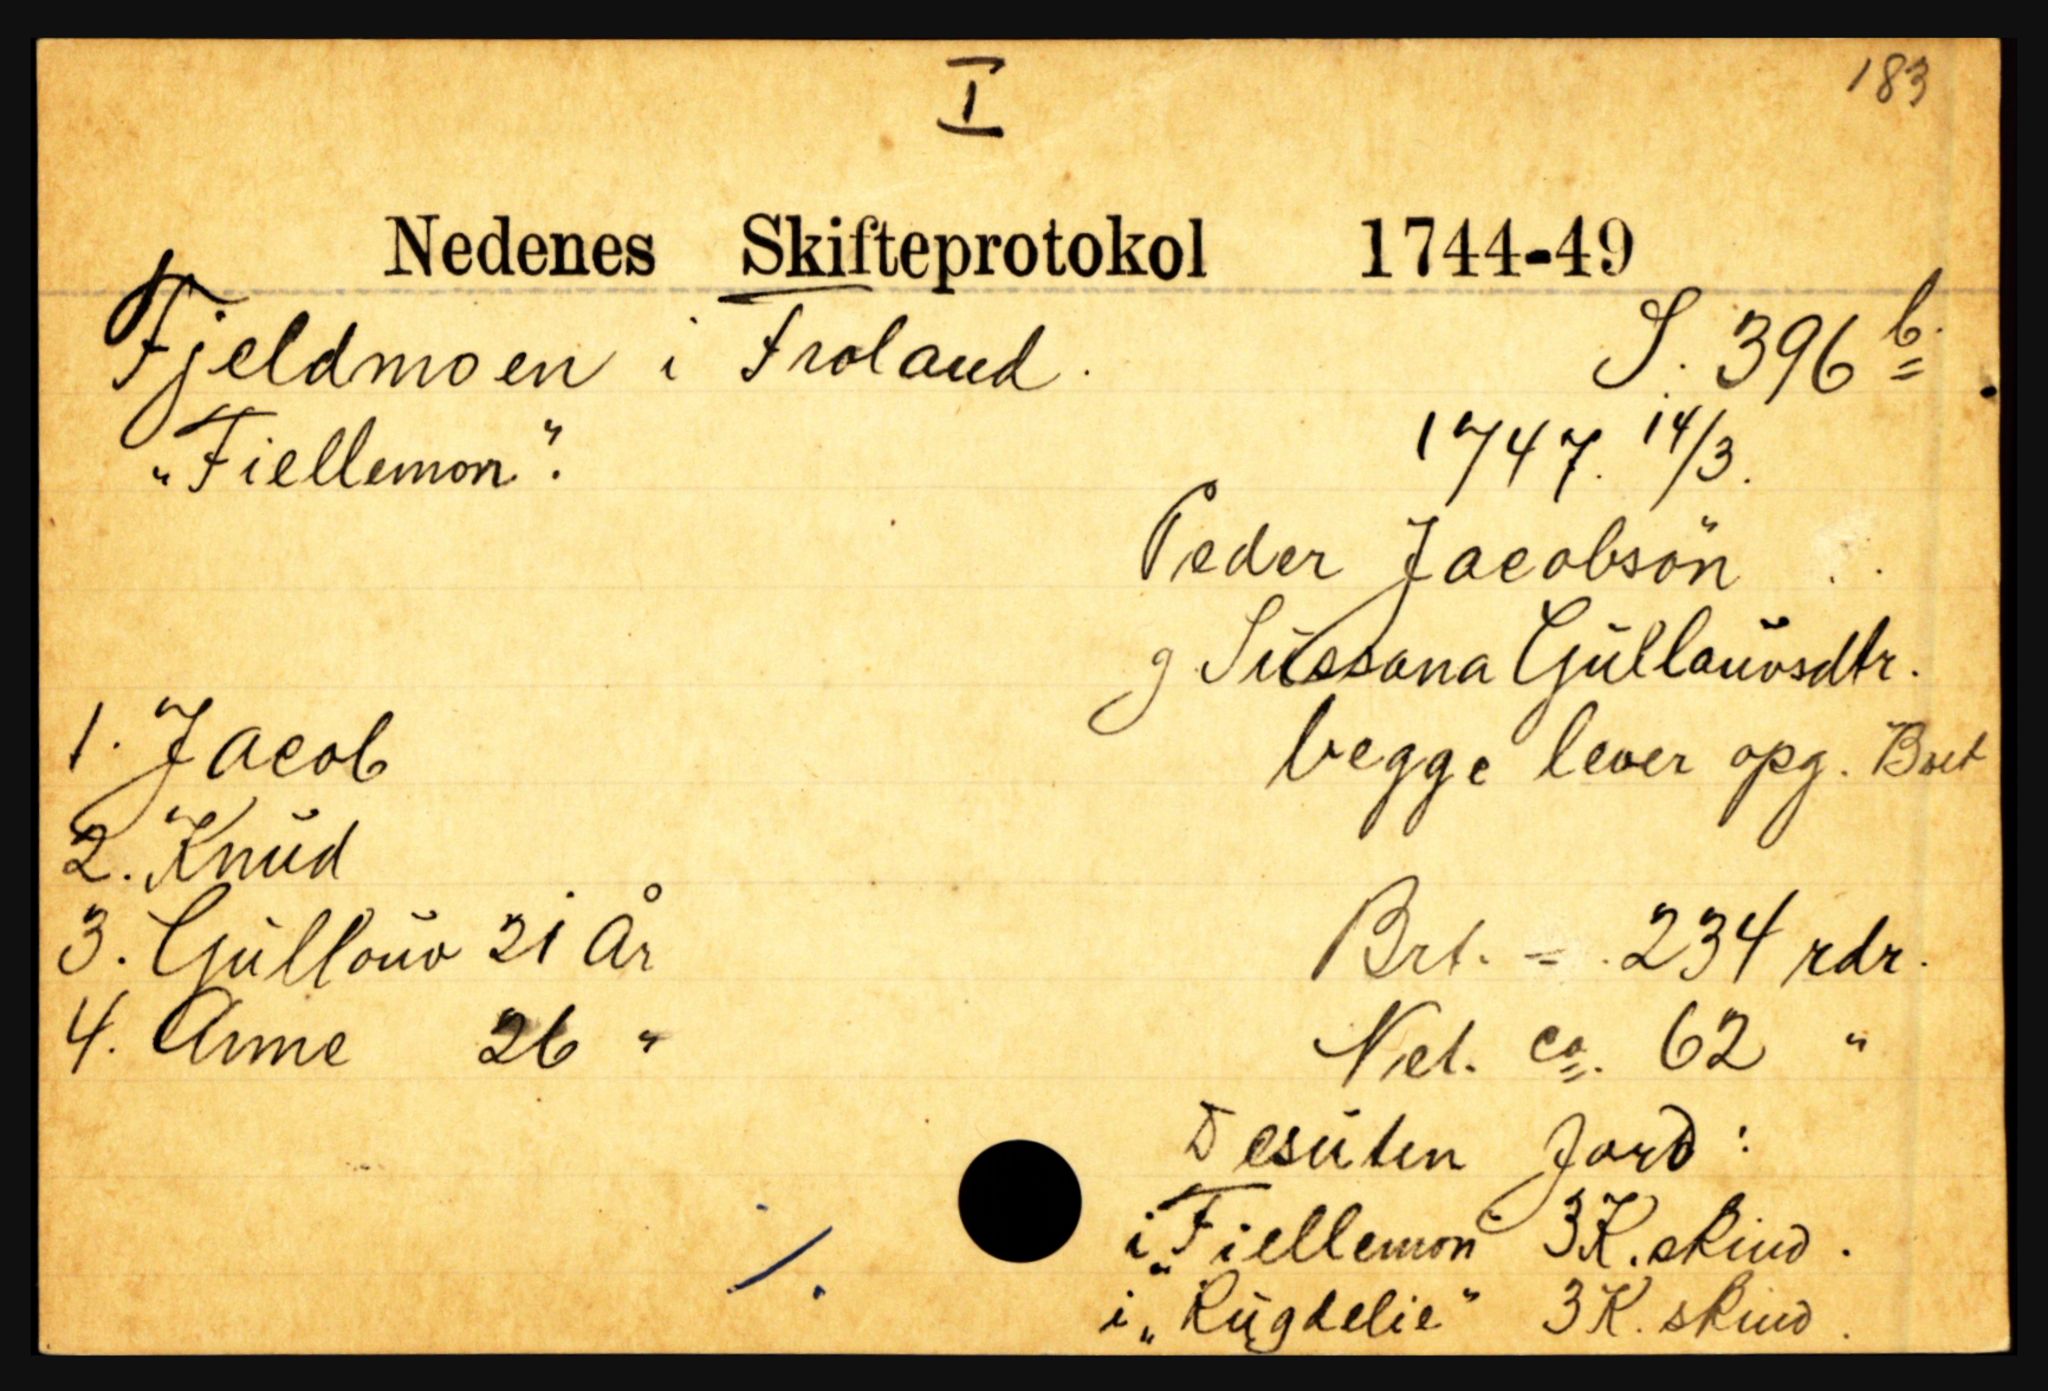 183
I
Nedenes Skifteprotokol 1744-49
Fjeldmoen i Froland. S. 396 b.
"Fiellemon". 1747. 14/3.
Peder Jacobsön
g Sussana Gullouvsdtr.
1. Jacob begge lever opg. Boet
2. Knud
3. Gullouv 21 År Brt. = 234 rdr.
4. Anne 26 " Net. ca. 62 "
Desuten Jord:
i "Fiellemon" 3 K. skind.
i "Rugdelie" 3 K. skind.